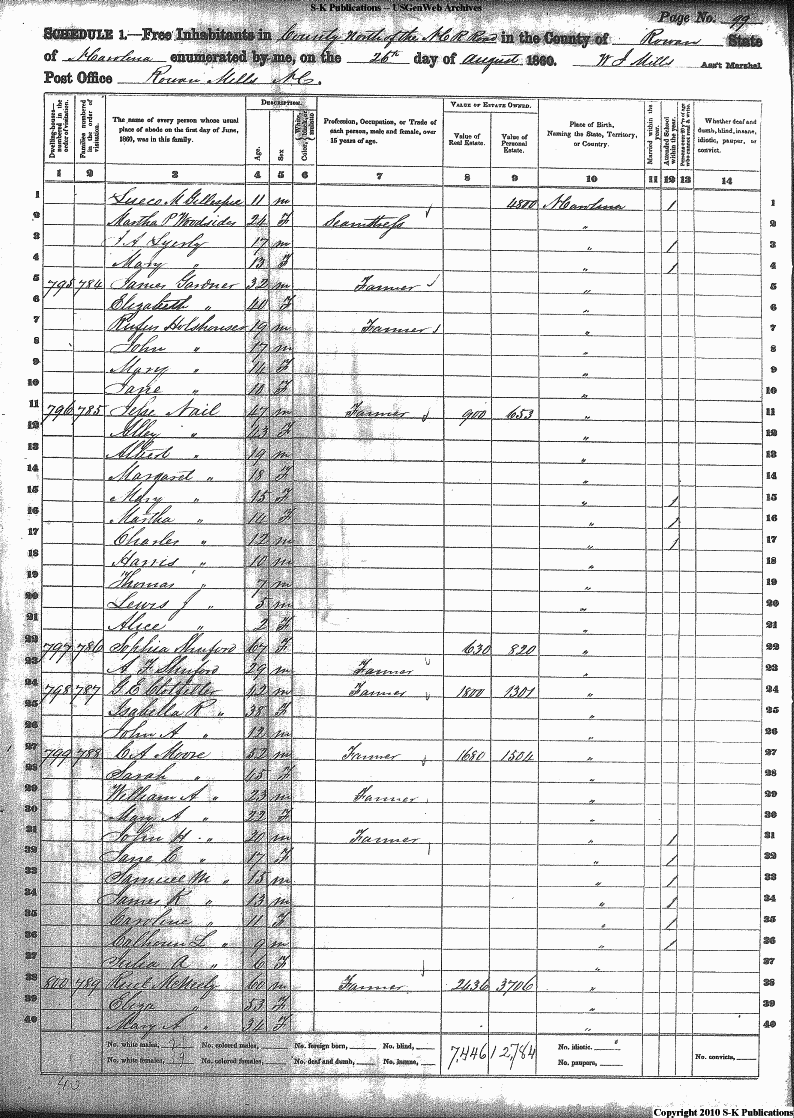 S-K Publications – USGenWeb Archives
Page No. 99
SCHEDULE 1.—Free Inhabitants in County North of the N C R Road in the County of Rowan State
of N Carolina enumerated by me, on the 26th day of August 1860. W J Mills Ass't Marshal.
Post Office Rowan Mills N C.
Dwelling-houses—numbered in the order of visitation.
Families numbered in the order of visitation.
The name of every person whose usual place of abode on the first day of June, 1860, was in this family.
DESCRIPTION.
Age.
Sex
Color, White, black, or mulatto
Profession, Occupation, or Trade of each person, male and female, over 15 years of age.
VALUE OF ESTATE OWNED.
Value of Real Estate.
Value of Personal Estate.
Place of Birth, Naming the State, Territory, or Country.
Married within the year.
Attended School within the year.
Persons over 20 y'rs of age who cannot read & write.
Whether deaf and dumb, blind, insane, idiotic, pauper, or convict.
1 2 3 4 5 6 7 8 9 10 11 12 13 14
1 M Gillespie 11 m 4800 N Carolina / 1
2 Martha P Woodsides 24 F Seamstress " 2
3 Lyerly 17 m " / 3
4 Mary " 13 F " / 4
5 795 784 James Gardner 32 m Farmer " 5
6 Elizabeth " 40 F " 6
7 Rufus Holshouser 19 m Farmer " 7
8 John " 17 m " 8
9 Mary " 14 F " 9
10 Jane " 10 F " 10
11 796 785 Jesse Nail 47 m Farmer 900 653 " 11
12 " 43 F " 12
13 Albert " 19 m " 13
14 Margaret " 18 F " 14
15 Mary " 15 F " / 15
16 Martha " 14 F " / 16
17 Charles " 12 m " / 17
18 Harris " 10 m " 18
19 Thomas " 7 m " 19
20 Lewis J " 5 m " 20
21 Alice " 2 F " 21
22 797 786 Sophia Shuford 67 F 630 820 " 22
23 A F Shuford 29 m Farmer " 23
24 798 787 G E Clotfelter 42 m Farmer 1800 1301 " 24
25 Isabella R " 38 F " 25
26 John A " 12 m " 26
27 799 788 C A Moore 52 m Farmer 1680 1504 " 27
28 Sarah " 45 F " 28
29 William A " 23 m Farmer " 29
30 Mary A " 22 F " 30
31 John H " 20 m Farmer " / 31
32 Jane C " 17 F " / 32
33 Samuel M " 15 m " / 33
34 James K " 13 m " / 34
35 Caroline " 11 F " / 35
36 Calhoun L " 9 m " / 36
37 Julia A " 6 F " 37
38 800 789 McNeely 60 m Farmer 2436 3706 " 38
39 Eliza " 53 F " 39
40 Mary A " 34 F " 40
No. white males, No. colored males, No. foreign born, No. blind, 7,446 12,784 No. idiotic. No. convicts,
No. white females, 19 No. colored females, No. deaf and dumb, No. insane, No. paupers,
40
Copyright 2010 S-K Publications